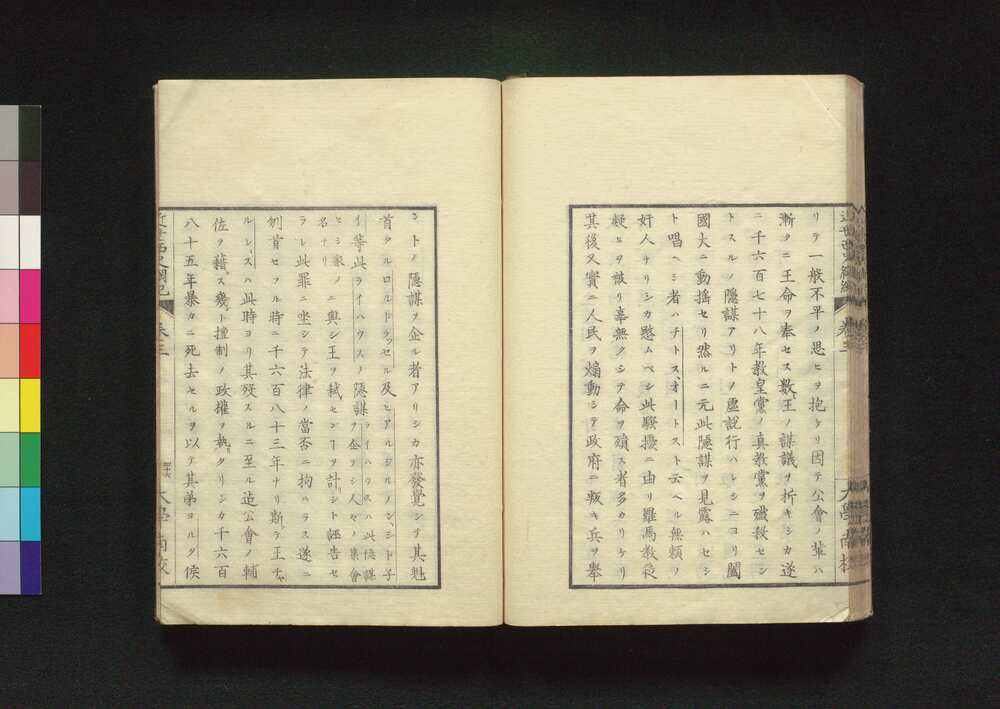 リテ一般不平ノ思ヒヲ抱ケリ因テ公會ノ輩ハ
漸ヲニ王命ヲ奉セス數〻王ノ謀議ヲ折キシカ遂
ニ千六百七十八年教皇黨ノ真教黨ヲ殱殺セン
トスルノ隠謀アリトノ虚説行ハレシニヨリ闔
國大ニ動揺セリ然ルニ元此隠謀ヲ見露ハセシ
ト唱ヘシ者ハチトスオートスト云ヘル無頼ノ
奸人ナリシカ愍ムベシ此騒擾ニ由リ羅馬教徒
疑ヒヲ被リ辜無クシテ命ヲ殞ス者多カリケリ
其後又實ニ人民ヲ煽動シテ政府ニ叛キ兵ヲ擧
卷三
大學南校
ントノ隠謀ヲ企ル者アリシカ亦發覺シテ其魁
首タルロルドラッセル及ヒアルジルノンシドネ
イ等此ライハウスノ隠謀
ライハウスハ此隠謀ヲ企ヲシ人々ノ集會
セシ家ノ名ナリ
ニ與シ王ヲ弑センヿヲ計リシト誣告セ
ラレ此罪ニ坐シテ法律ノ當否ニ拘ハラス遂ニ
刎首セラル時ニ千六百八十三年ナリ斯テ王チャ
ルレスハ此時ヨリ其歿スルニ至ル迄公會ノ輔
佐ヲ藉ラス幾ト擅制ノ政權ヲ執タリシカ千六百
八十五年暴カニ死去セルヲ以テ其弟ヨルク侯
近世西史綱紀
卷三
大學南校